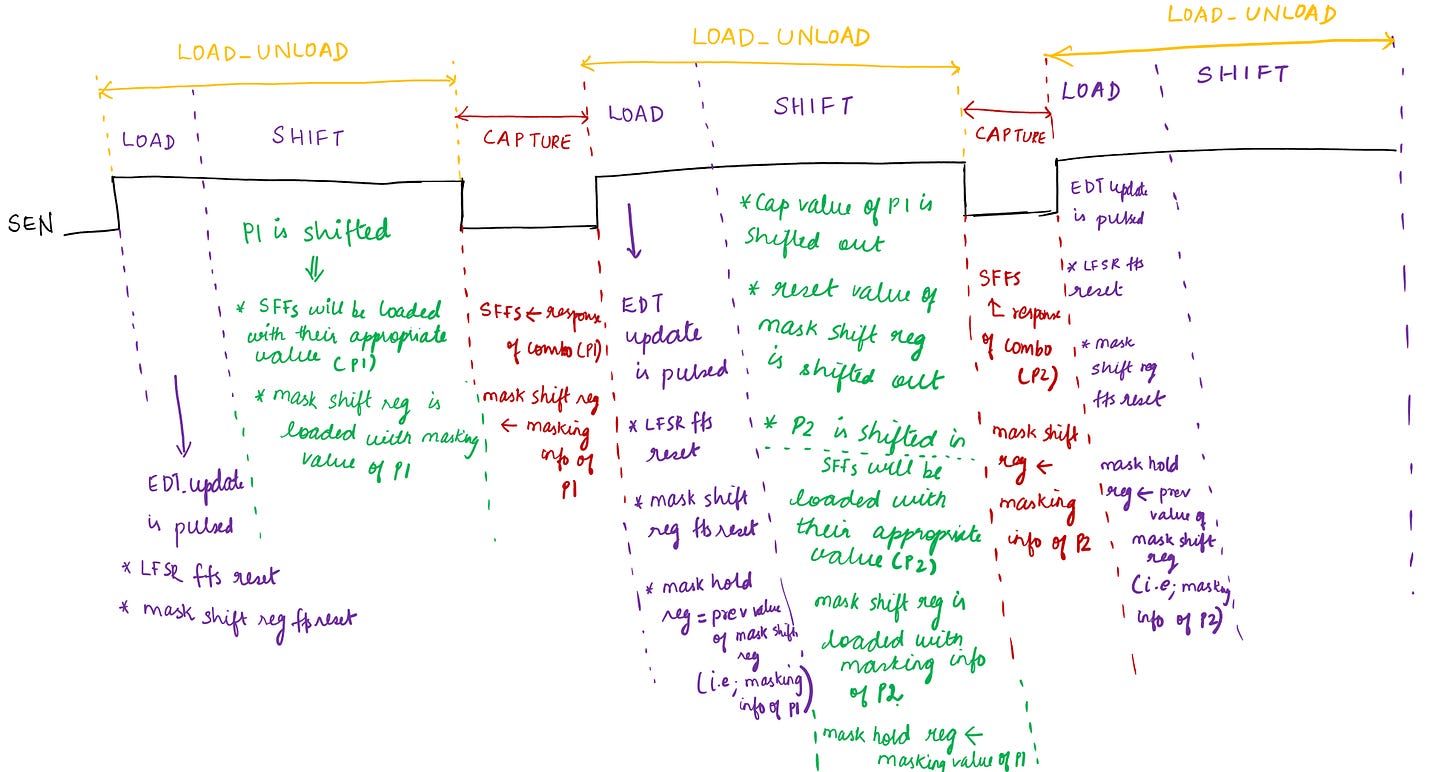 LOAD_UNLOAD
LOAD_UNLOAD
LOAD_UNLOAD
LOAD
SHIFT
CAPTURE
LOAD
SHIFT
CAPTURE
LOAD
SHIFT
SEN
P1 is shifted
⇓
* SFFs will be loaded
with their appropriate
value (P1)
* mask shift reg is
loaded with masking
value of P1
EDT_update
is pulsed
* LFSR ffs reset
* mask shift reg ff reset
SFFS ← response
of combo (P1)
mask shift reg
← masking
info of
P1
EDT
update
is pulsed
* LFSR ffs
reset
* mask shift
reg ffs reset
* mask hold
reg = prev value
of mask shift
reg
(i.e; masking
info of P1)
* Cap value of P1 is
shifted out
* reset value of
mask shift reg
is shifted out
* P2 is shifted in
SFFs will be
loaded with
their appropriate
value (P2)
mask shift reg is
loaded with
masking info
of P2.
mask hold reg ←
masking value of P1
SFFS
↑ response
of combo
(P2)
mask shift
reg ←
masking
info of P2
EDT update
is pulsed
* LFSR ffs
reset
* mask
shift reg
ffs reset
mask hold
reg ← prev
value of
mask shift
reg
(i.e; masking
info of P2)